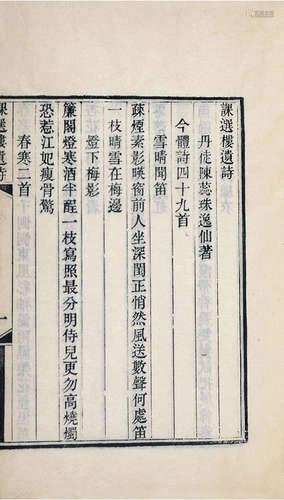 課選樓遺詩
丹徒陳蕊珠逸仙著
今體詩四十九首
雪晴聞笛
疎煙素影曉窗前人坐深閨正悄然風送數聲何處笛
一枝晴雪在梅邊
燈下梅影
簾閣燈寒酒半醒一枝寫照最分明侍兒更勿高燒燭
恐惹江妃瘦骨驚
春寒二首
課選樓遺詩
一